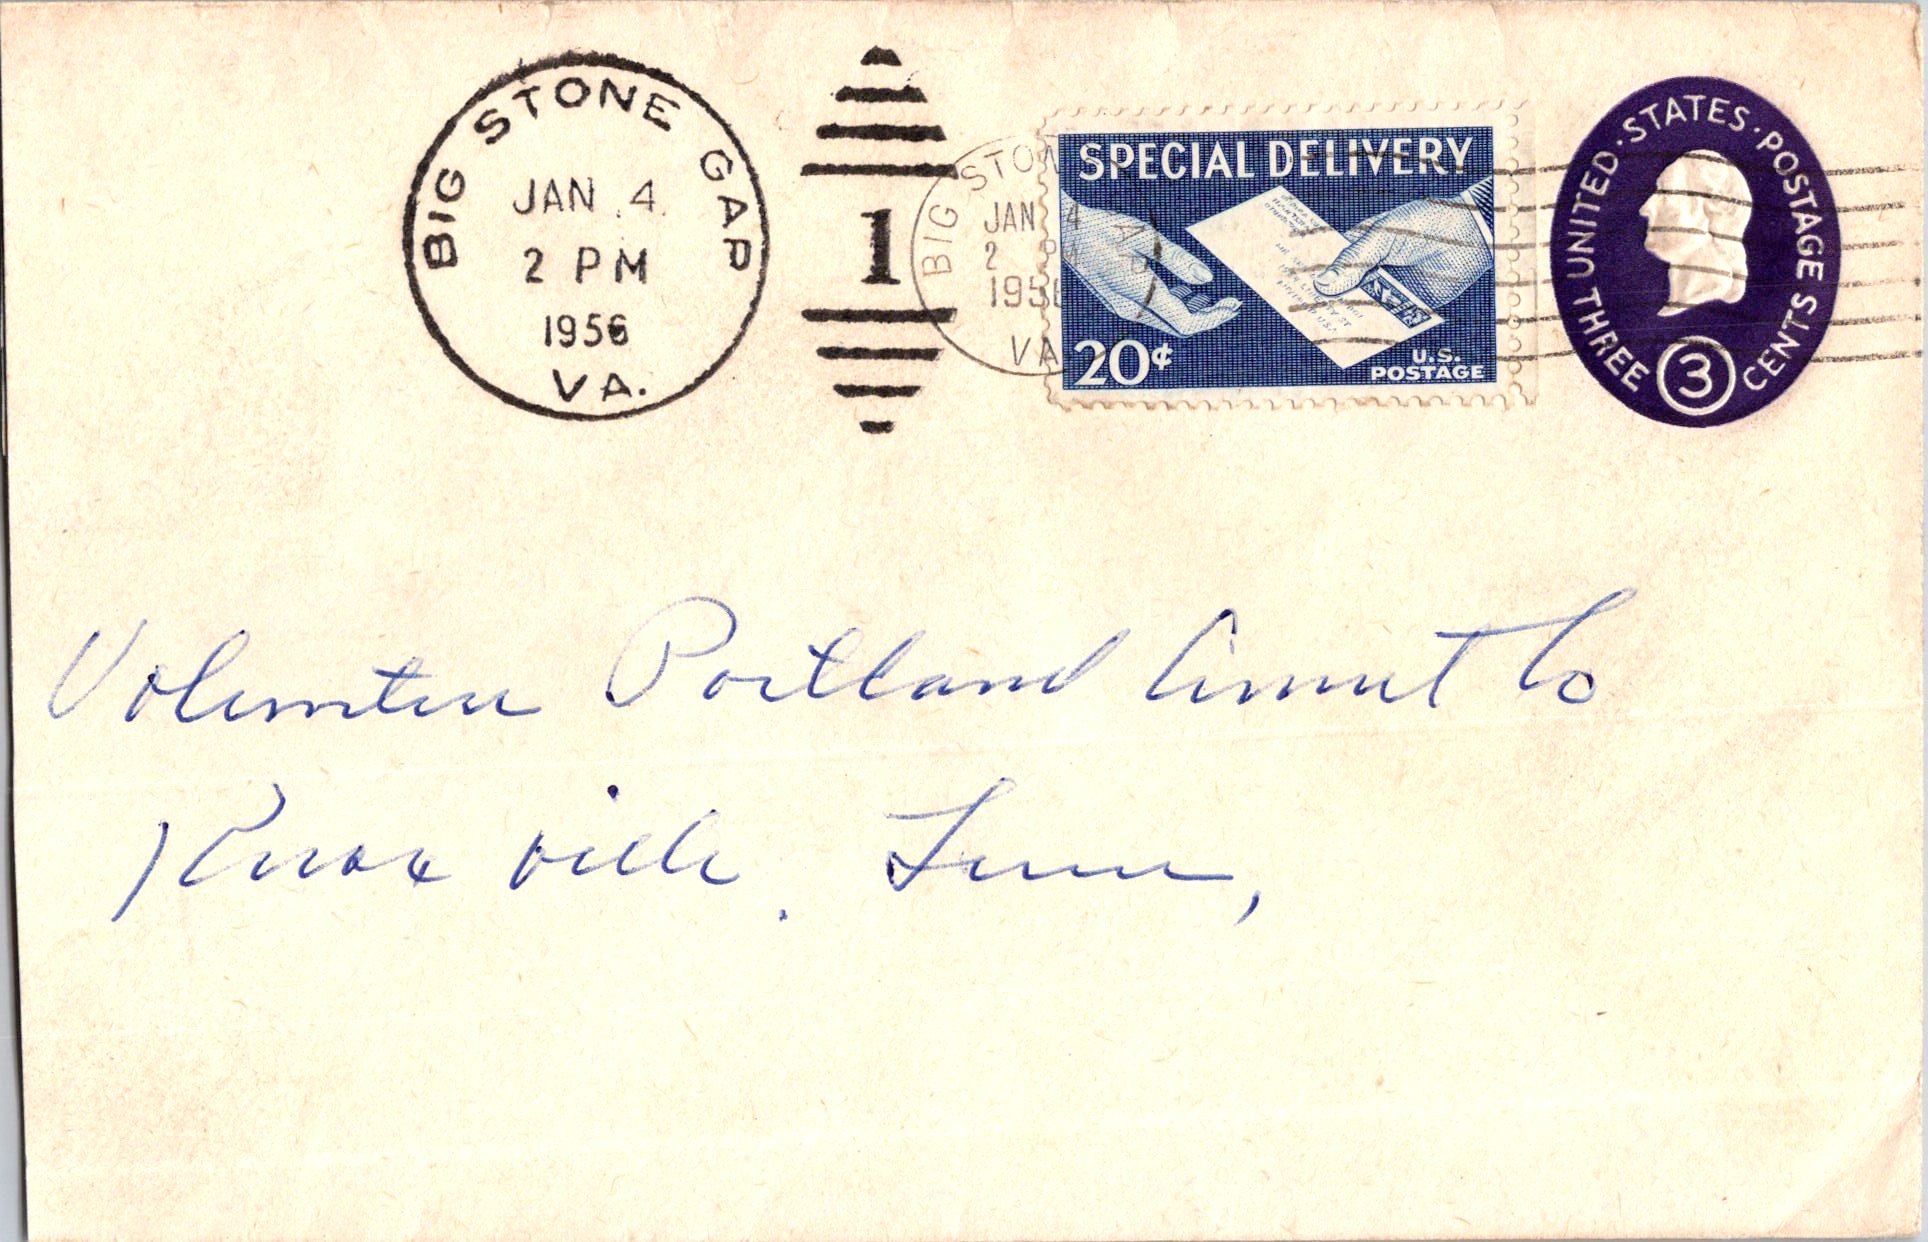 BIG STONE GAP
JAN 4
2 PM
1956
VA.
1
BIG STON AP
JAN 4
2 PM
1956
VA
SPECIAL DELIVERY
20¢
U.S.
POSTAGE
UNITED · STATES · POSTAGE
THREE 3 CENTS
Volunteer Portland Cement Co
Knoxville. Tenn,